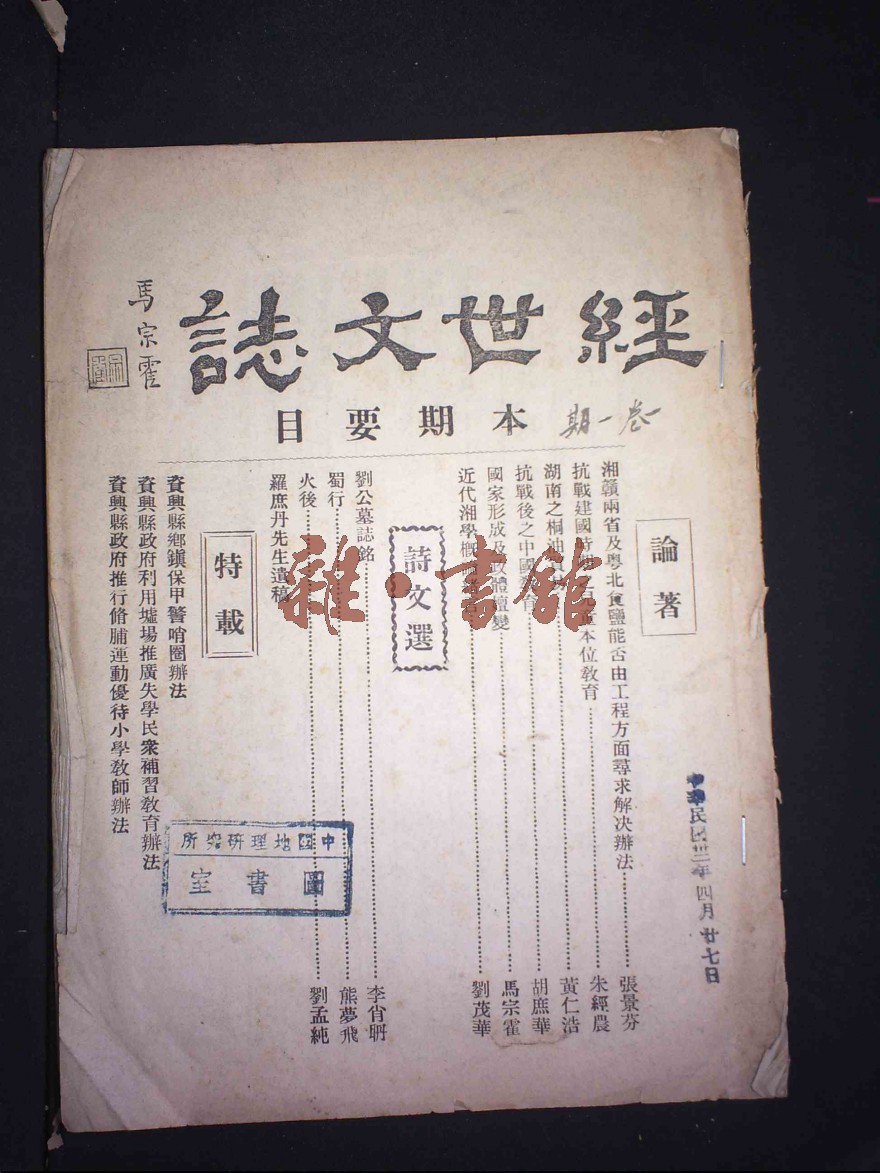 經世文誌
馬宗霍
一卷一期
本期要目
論著
湘贛兩省及粵北食鹽能否由工程方面尋求解決辦法 張景芬
抗戰建國 本位敎育 朱經農
湖南之桐油 黃仁浩
抗戰後之中國 育 胡庶華
國家形成及政體 變 馬宗霍
近代湘學槪 劉茂華
詩文選
劉公墓誌銘 李肖聃
蜀行 熊夢飛
火後 劉孟純
羅庶丹先生遺稿
特載
資興縣鄉鎭保甲警哨圈辦法
資興縣政府利用墟場推廣失學民衆補習敎育辦法
資興縣政府推行脩脯運動優待小學敎師辦法
中國地理研究所
圖書室
中華民國卅三年四月廿七日
雜·書舘